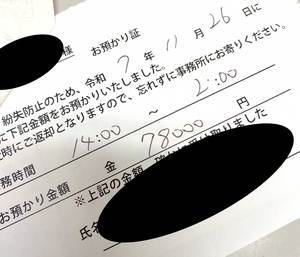 様 お預かり証
紛失防止のため、令和 7 年 11 月 26 日に
に下記金額をお預かりいたしました。
時にご返却となりますので、忘れずに事務所にお寄りください。
務時間 14:00 ～ 2:00
お預かり金額 金 78000 円
※上記の金額 取りました
氏名